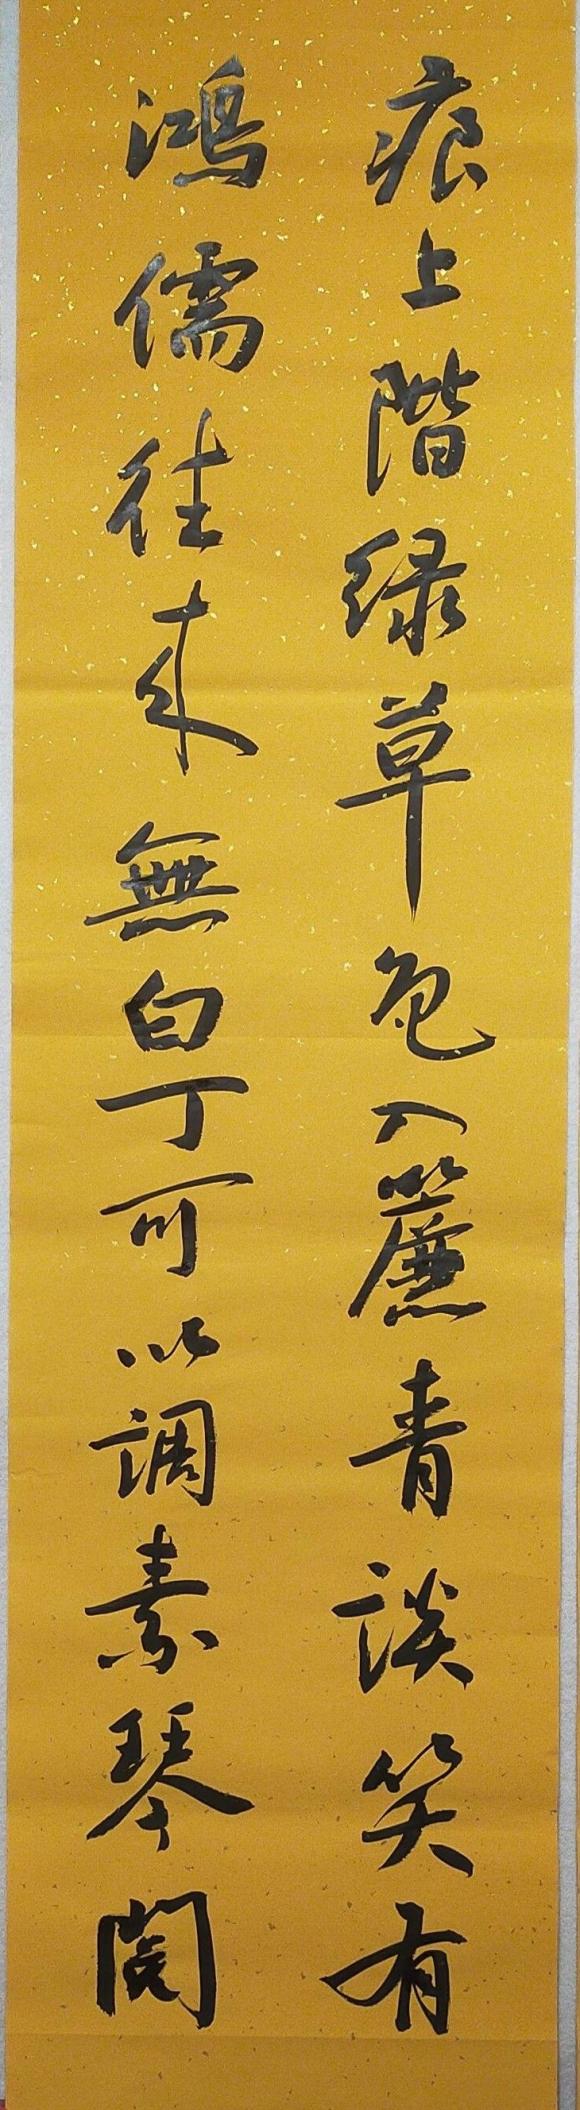 痕上階绿草色入簾青談笑有
鴻儒往来無白丁可以調素琴閱